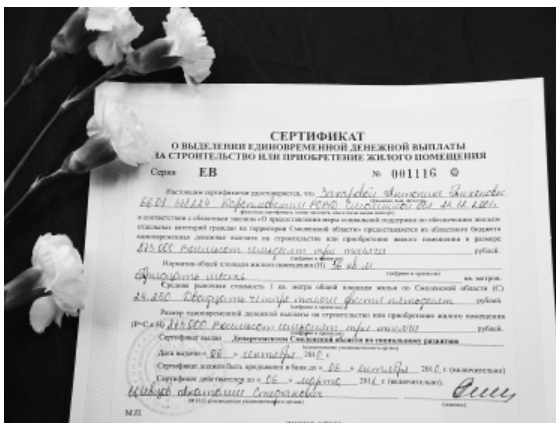 СЕРТИФИКАТ
О ВЫДЕЛЕНИИ ЕДИНОВРЕМЕННОЙ ДЕНЕЖНОЙ ВЫПЛАТЫ
НА СТРОИТЕЛЬСТВО ИЛИ ПРИОБРЕТЕНИЕ ЖИЛОГО ПОМЕЩЕНИЯ
Серия ЕВ № 001116
Настоящим сертификатом удостоверяется, что Захаровой Антонине
66 01 РОВД Смоленской обл.
в соответствии с областным законом «О предоставлении меры социальной поддержки по обеспечению жильем
отдельных категорий граждан на территории Смоленской области» предоставляется из областного бюджета
единовременная денежная выплата на строительство или приобретение жилого помещения в размере
873 000 Восемьсот семьдесят три тысячи рублей.
Норматив общей площади жилого помещения (Н) 36 кв.м
тридцать шесть кв. метров.
Средняя рыночная стоимость 1 кв. метра общей площади жилья по Смоленской области (С)
24 250 Двадцать четыре тысячи двести пятьдесят рублей.
Размер единовременной денежной выплаты на строительство или приобретение жилого помещения
(Р=С x Н) 873 000 Восемьсот семьдесят три тысячи
Сертификат выдан Департаментом Смоленской области по социальному развитию
Дата выдачи « 06 » сентября 2010 г.
Сертификат должен быть предъявлен в банк до « 06 » октября 2010 г. (включительно)
Сертификат действителен до « 06 » марта 2011 г. (включительно).
Анатолий Стефанович
(подпись)
М.П.